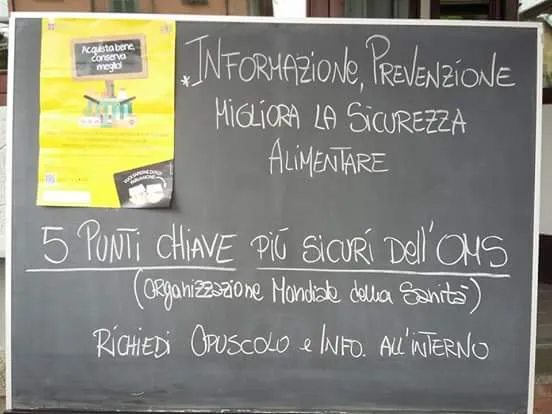 Acquista bene,
conserva
meglio!
VUOI SAPERNE DI PIÙ?
*INFORMAZIONE, PREVENZIONE
MIGLIORA LA SICUREZZA
ALIMENTARE
5 PUNTI CHIAVE PIÙ SICURI DELL'OMS
(ORGANIZZAZIONE MONDIALE DELLA SANITÀ)
RICHIEDI OPUSCOLO E INFO. ALL'INTERNO